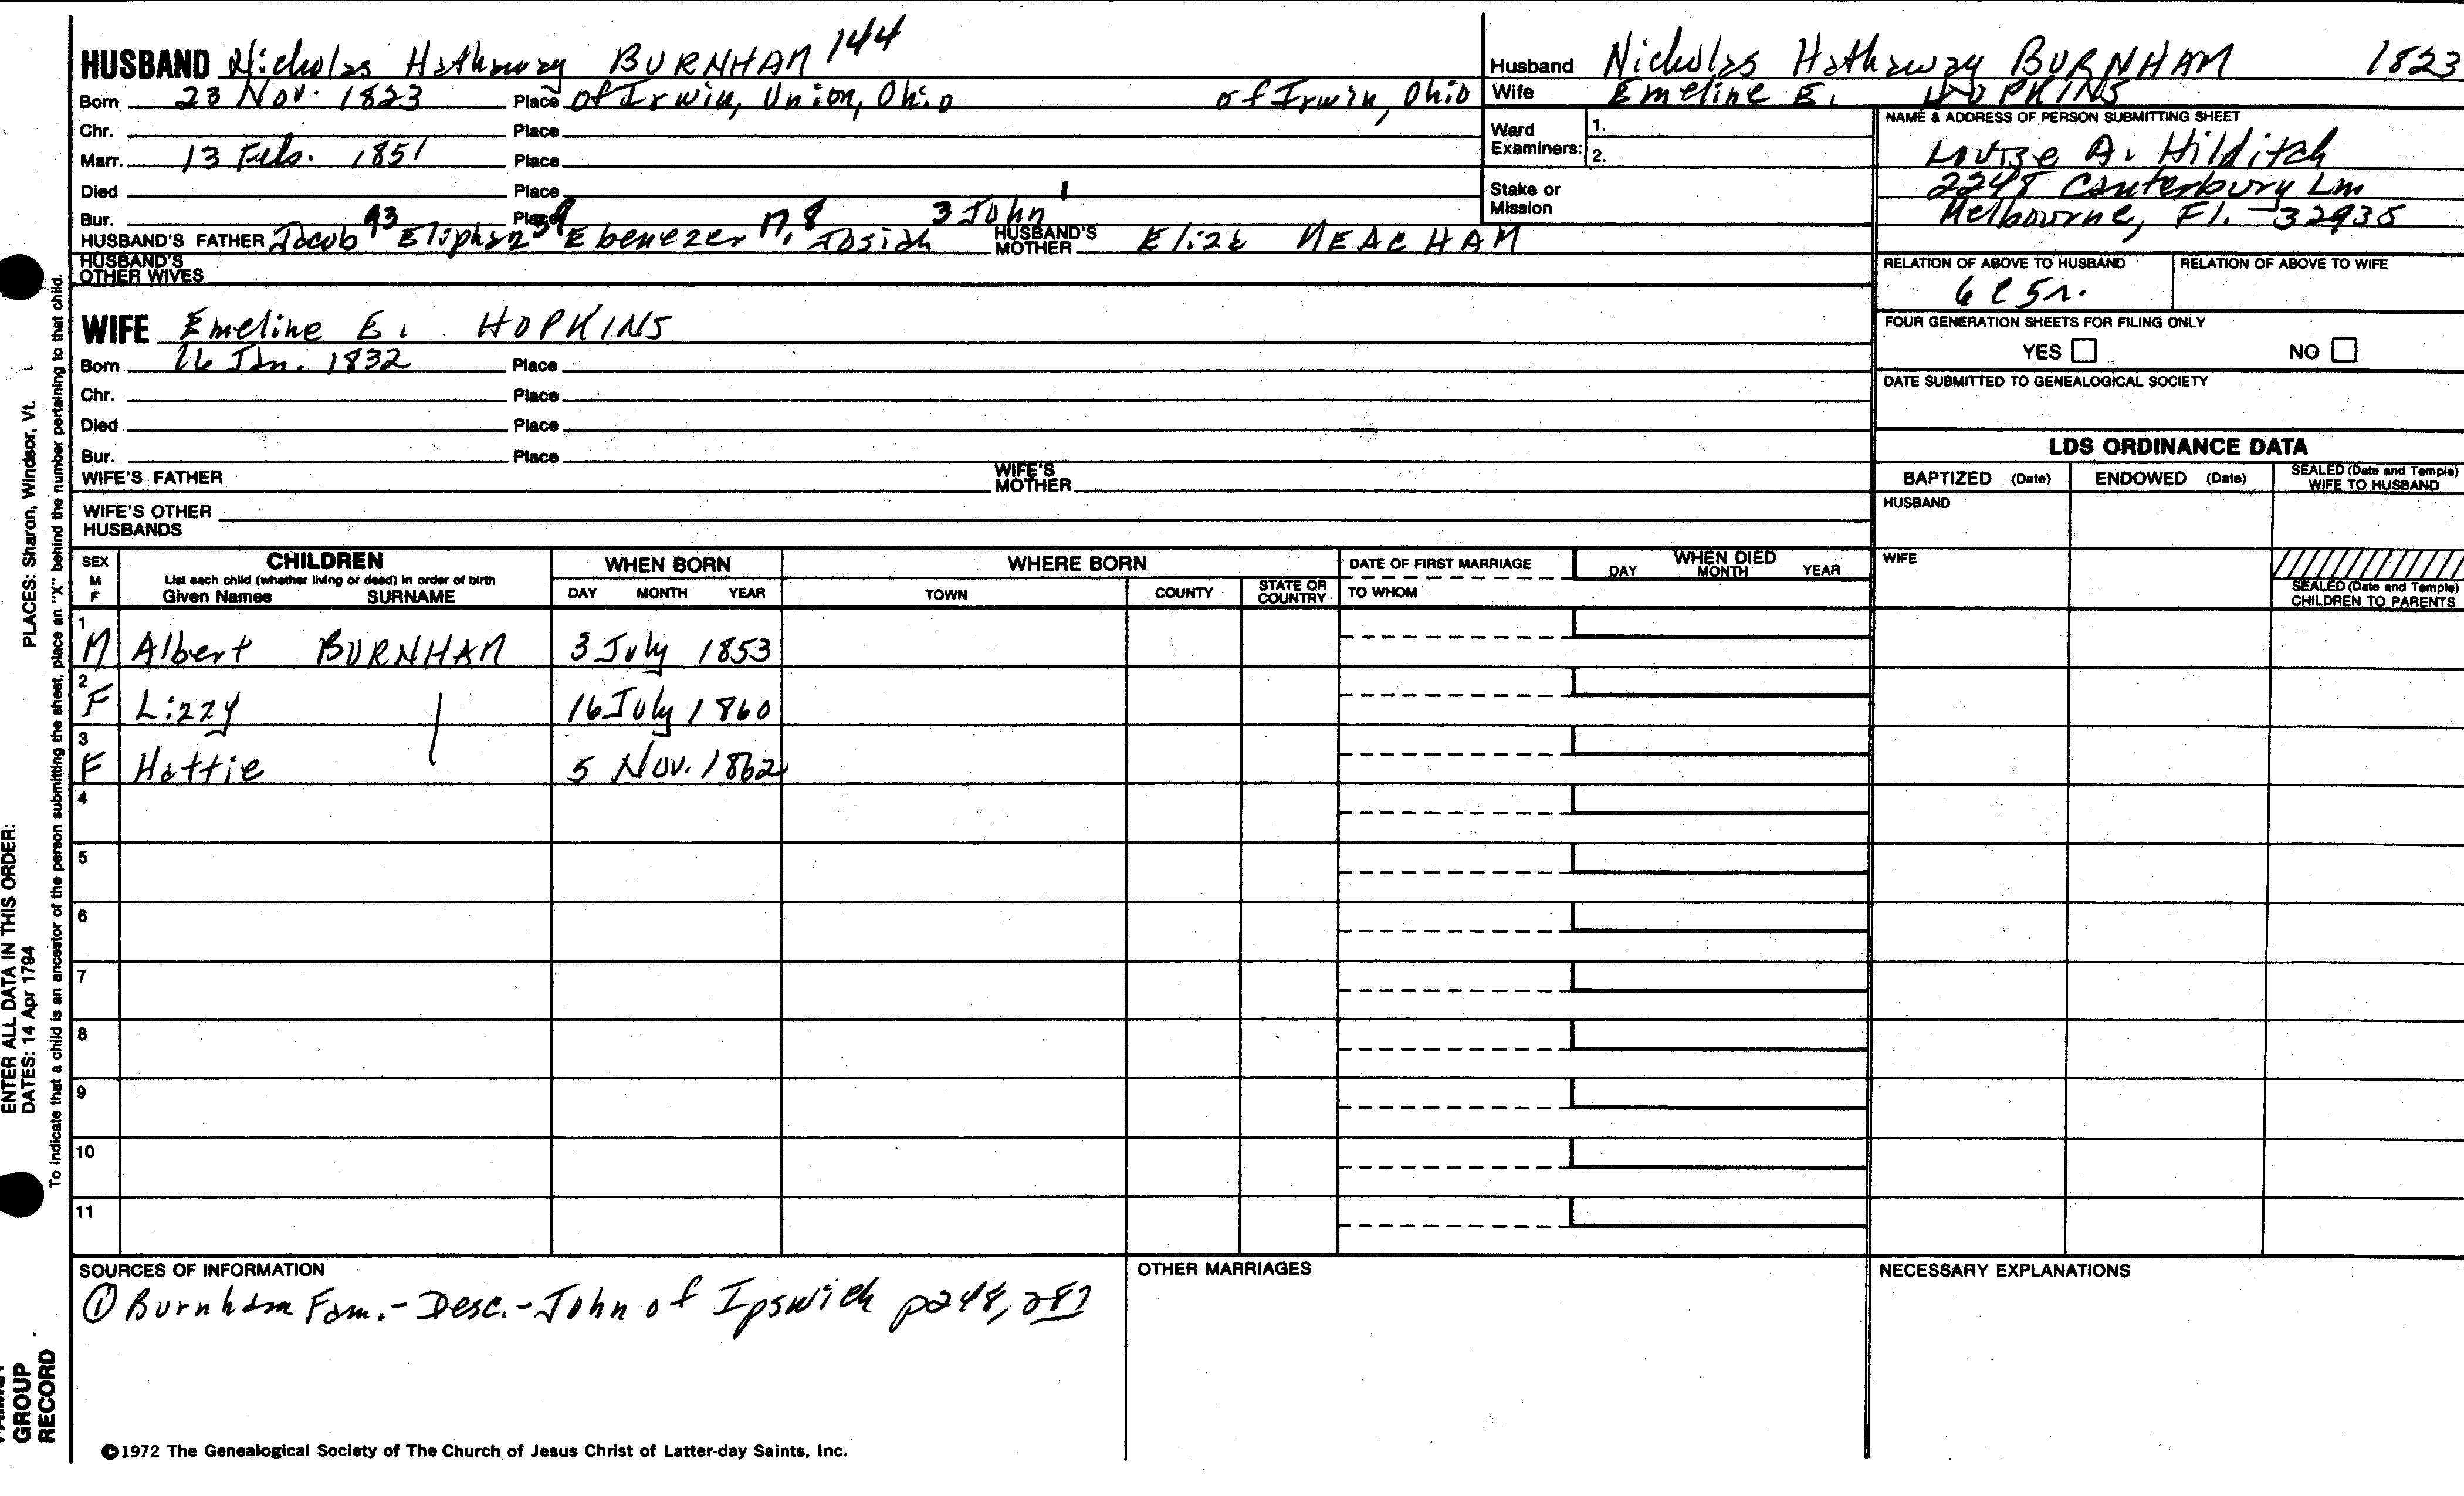 HUSBAND Nicholas Hathaway BURNHAM 144
Born 23 Nov. 1823 Place of Irwin, Union, Ohio of Irwin, Ohio
Chr. Place
Marr. 13 Feb. 1851 Place
Died Place
Bur. Place
HUSBAND'S FATHER Jacob 93 Eliphaz 39 Ebenezer 17, 8 Josiah 3 John 1 HUSBAND'S MOTHER Eliza MEACHAM
HUSBAND'S
OTHER WIVES
WIFE Emeline E. HOPKINS
Born 26 Jan. 1832 Place
Chr. Place
Died Place
Bur. Place
WIFE'S FATHER WIFE'S MOTHER
WIFE'S OTHER
HUSBANDS
Husband Nicholas Hathaway BURNHAM 1823
Wife Emeline E. HOPKINS
Ward Examiners: 1. 2.
Stake or Mission
NAME & ADDRESS OF PERSON SUBMITTING SHEET
Louise A. Hilditch
2248 Canterbury Ln
Melbourne, Fl. 32935
RELATION OF ABOVE TO HUSBAND RELATION OF ABOVE TO WIFE
6C5R.
FOUR GENERATION SHEETS FOR FILING ONLY
YES NO
DATE SUBMITTED TO GENEALOGICAL SOCIETY
LDS ORDINANCE DATA
BAPTIZED (Date) ENDOWED (Date) SEALED (Date and Temple) WIFE TO HUSBAND
HUSBAND
WIFE
SEALED (Date and Temple) CHILDREN TO PARENTS
SEX M F CHILDREN WHEN BORN WHERE BORN DATE OF FIRST MARRIAGE WHEN DIED
List each child (whether living or dead) in order of birth
Given Names SURNAME DAY MONTH YEAR TOWN COUNTY STATE OR COUNTRY TO WHOM DAY MONTH YEAR
1 M Albert BURNHAM 3 July 1853
2 F Lizzy 16 July 1860
3 F Hattie 5 Nov. 1862
4
5
6
7
8
9
10
11
SOURCES OF INFORMATION OTHER MARRIAGES NECESSARY EXPLANATIONS
① Burnham Fam.-Desc.-John of Ipswich p248,
©1972 The Genealogical Society of The Church of Jesus Christ of Latter-day Saints, Inc.
PLACES: Sharon, Windsor, Vt.
To indicate that a child is an ancestor of the person submitting the sheet, place an "X" behind the number pertaining to that child.
ENTER ALL DATA IN THIS ORDER:
DATES: 14 Apr 1794
GROUP
RECORD